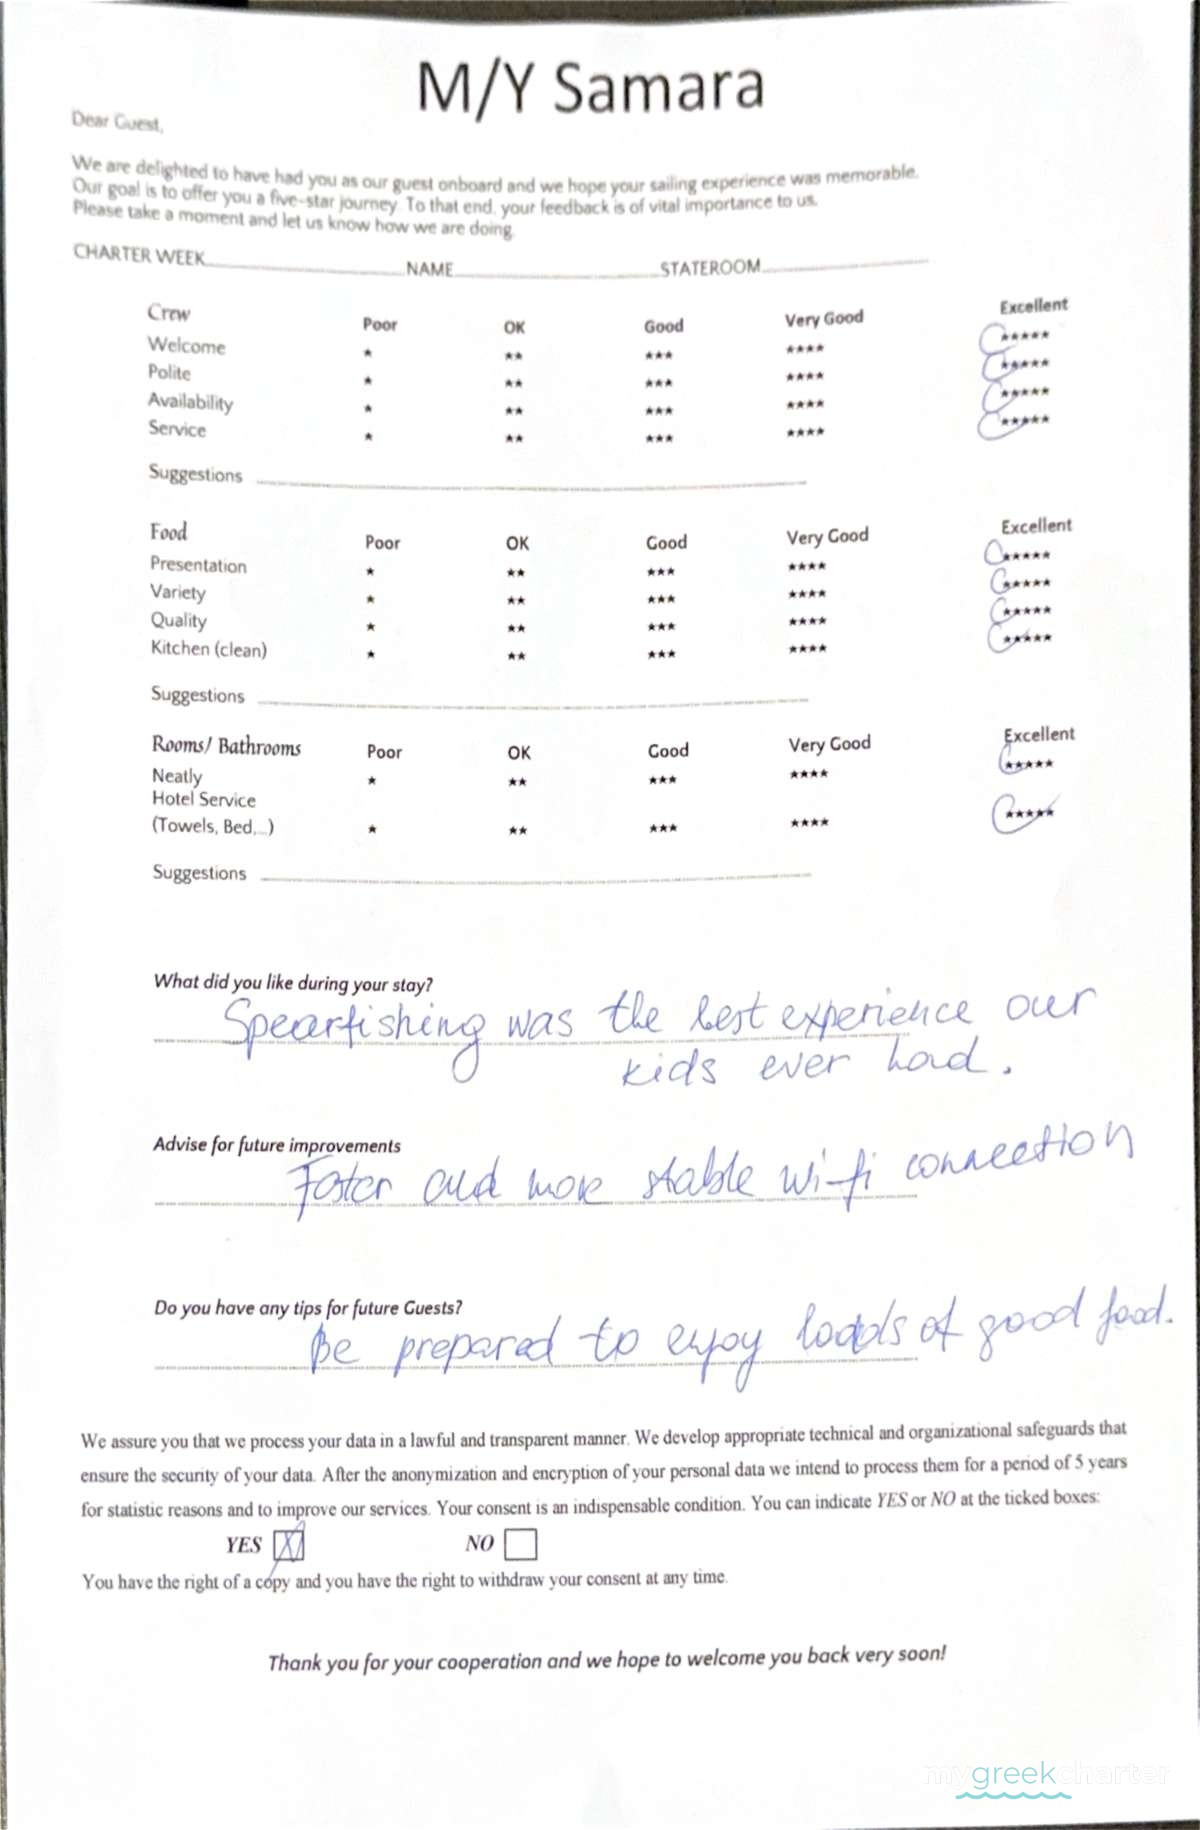 M/Y Samara
Dear Guest,
We are delighted to have had you as our guest onboard and we hope your sailing experience was memorable.
Our goal is to offer you a five-star journey. To that end, your feedback is of vital importance to us.
Please take a moment and let us know how we are doing.
CHARTER WEEK NAME STATEROOM
Crew Poor OK Good Very Good Excellent
Welcome ★ ★★ ★★★ ★★★★ ★★★★★
Polite ★ ★★ ★★★ ★★★★ ★★★★★
Availability ★ ★★ ★★★ ★★★★ ★★★★★
Service ★ ★★ ★★★ ★★★★ ★★★★★
Suggestions
Food Poor OK Good Very Good Excellent
Presentation ★ ★★ ★★★ ★★★★ ★★★★★
Variety ★ ★★ ★★★ ★★★★ ★★★★★
Quality ★ ★★ ★★★ ★★★★ ★★★★★
Kitchen (clean) ★ ★★ ★★★ ★★★★ ★★★★★
Suggestions
Rooms/ Bathrooms Poor OK Good Very Good Excellent
Neatly ★ ★★ ★★★ ★★★★ ★★★★★
Hotel Service
(Towels, Bed,...) ★ ★★ ★★★ ★★★★ ★★★★★
Suggestions
What did you like during your stay?
Spearfishing was the best experience our
kids ever had.
Advise for future improvements
Faster and more stable wi-fi connection
Do you have any tips for future Guests?
Be prepared to enjoy loads of good food.
We assure you that we process your data in a lawful and transparent manner. We develop appropriate technical and organizational safeguards that
ensure the security of your data. After the anonymization and encryption of your personal data we intend to process them for a period of 5 years
for statistic reasons and to improve our services. Your consent is an indispensable condition. You can indicate YES or NO at the ticked boxes:
YES NO
You have the right of a copy and you have the right to withdraw your consent at any time.
Thank you for your cooperation and we hope to welcome you back very soon!
mygreekcharter